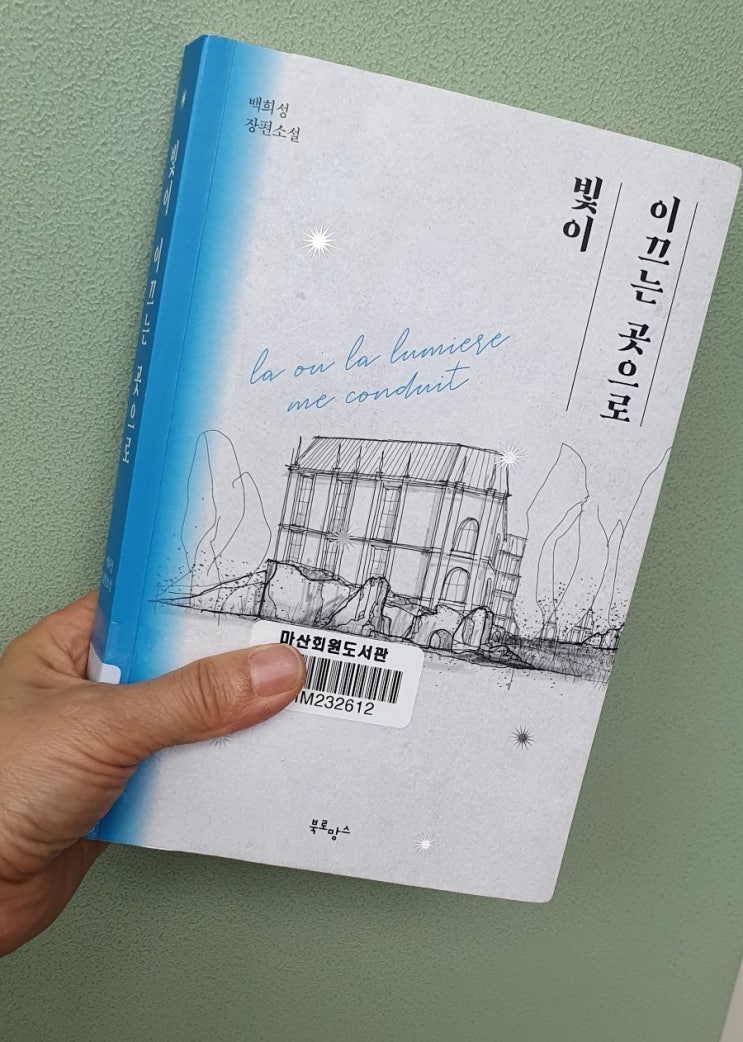 백희성
장편소설
빛이
이끄는 곳으로
la ou la lumiere
me conduit
마산회원도서관
M232612
북로망스
빛이 이끄는 곳으로